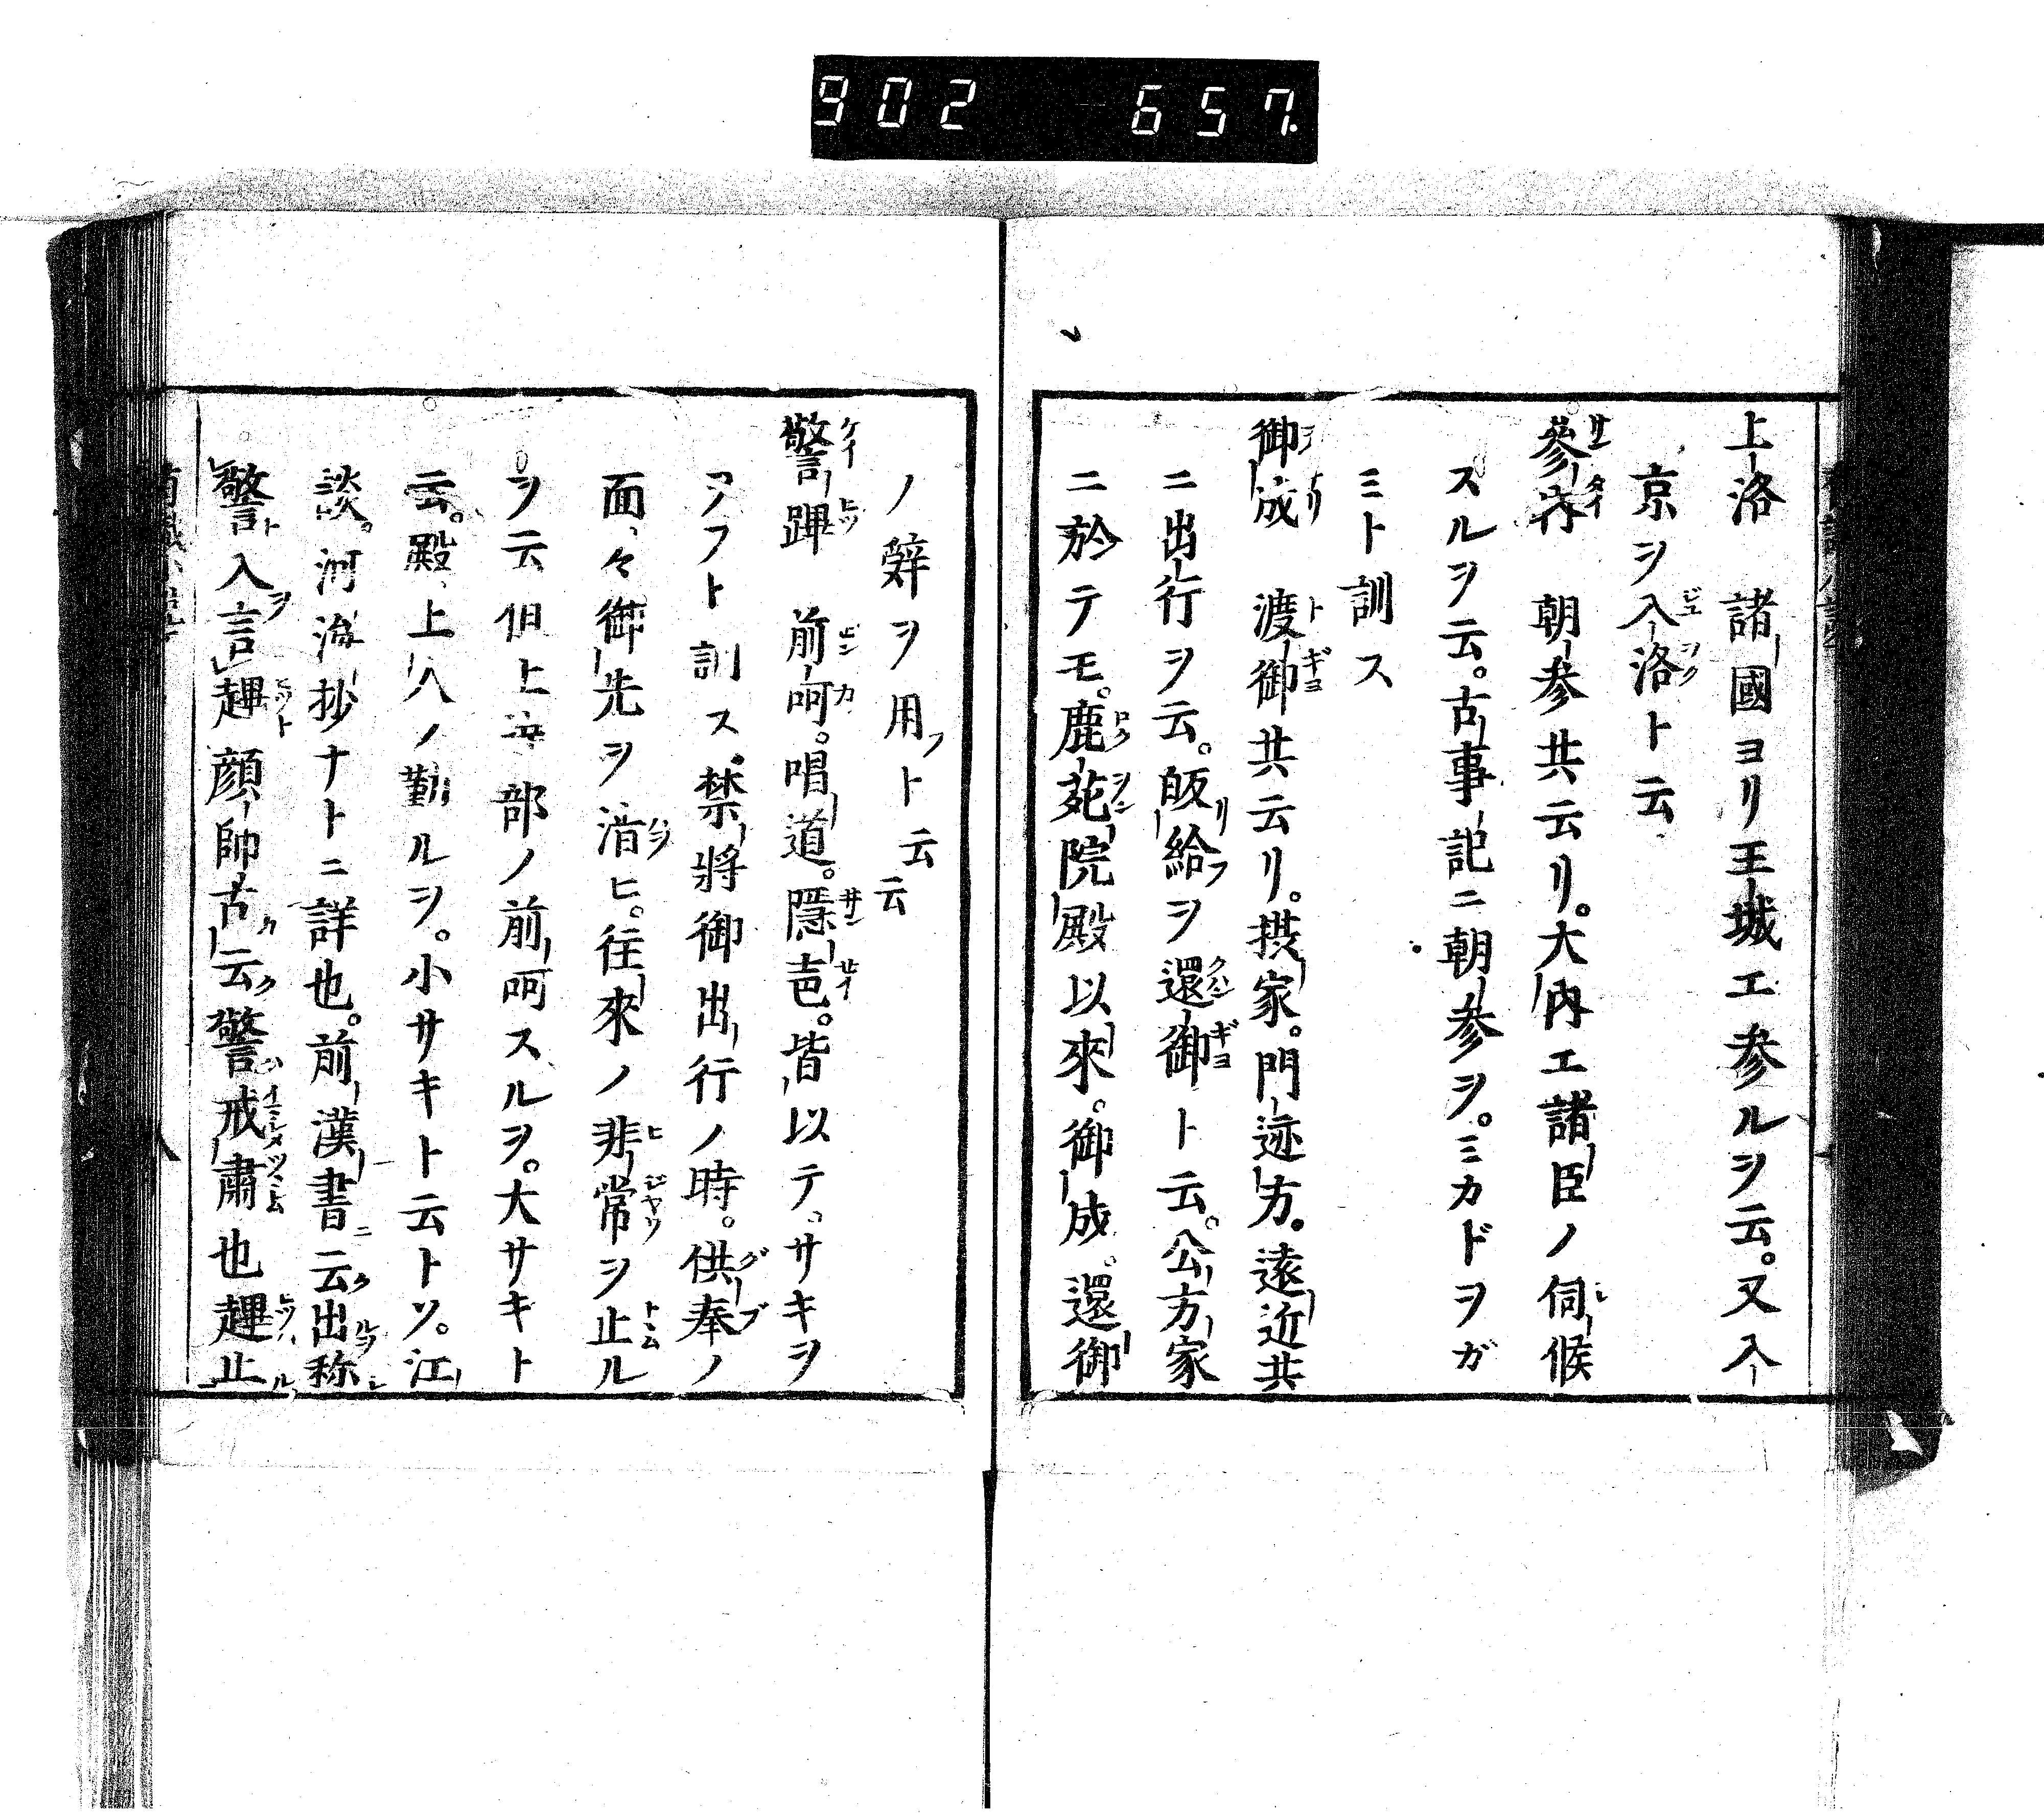 902 657.
上洛 諸國ヨリ王城エ参ルヲ云。又入
京ヲ入洛ト云
參内 朝参共云リ。大内エ諸臣ノ伺候
スルヲ云。古事記ニ朝参ヲ。ミカドヲガ
ミト訓ス
御成 渡御共云リ。摂家。門迹方。遠近共
ニ出行ヲ云。皈給ヲ還御ト云。公方家
ニ於テモ。鹿苑院殿以來。御成。還御
ノ辞ヲ用フト云云
警蹕 前呵。唱道。隱㐖。皆以テ。サキヲ
フト訓ス。禁將御出行ノ時。供奉ノ
面々御先ヲ清ヒ。往來ノ非常ヲ止ル
ヲ云但上部ノ前呵スルヲ。大サキト
云。殿上人ノ勤ルヲ。小サキト云トソ。江
談。河海抄ナトニ詳也。前漢書云出称
警入言趩顔師古云警戒肅也趩止